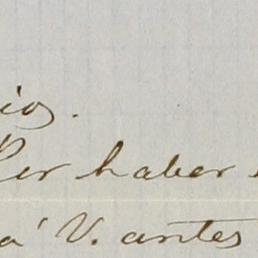 ios.
Per haber
a' V. antes